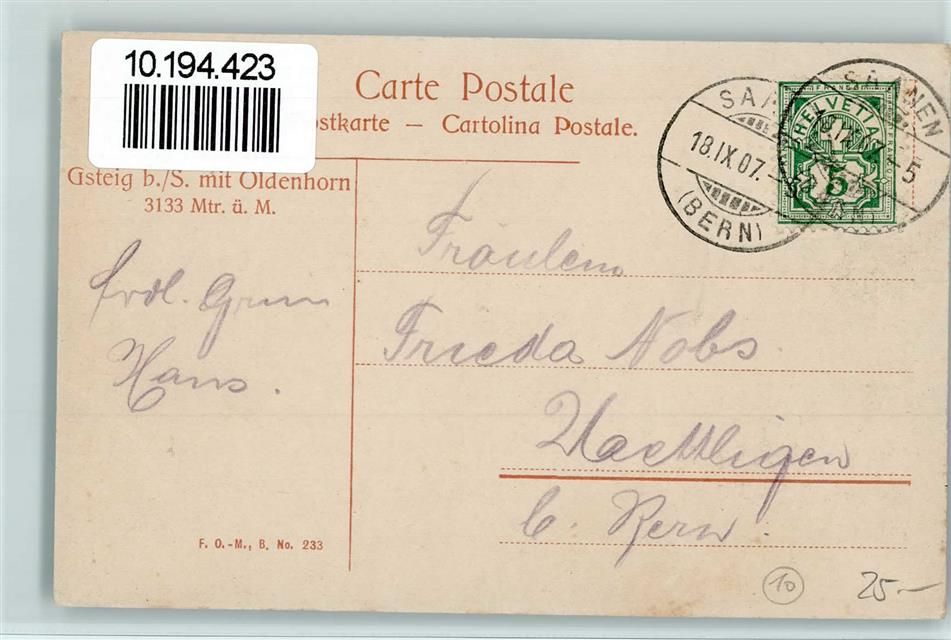 10.194.423
Carte Postale
ostkarte — Cartolina Postale.
Gsteig b./S. mit Oldenhorn
3133 Mtr. ü. M.
SAA
18.IX.07.–5
(BERN)
SAANEN
–5
HELVETIA
5
Fräulein
Frieda Nobs
Uettligen
b. Bern.
frdl. Gruss
Hans.
F. O.-M., B. No. 233
10
25.–